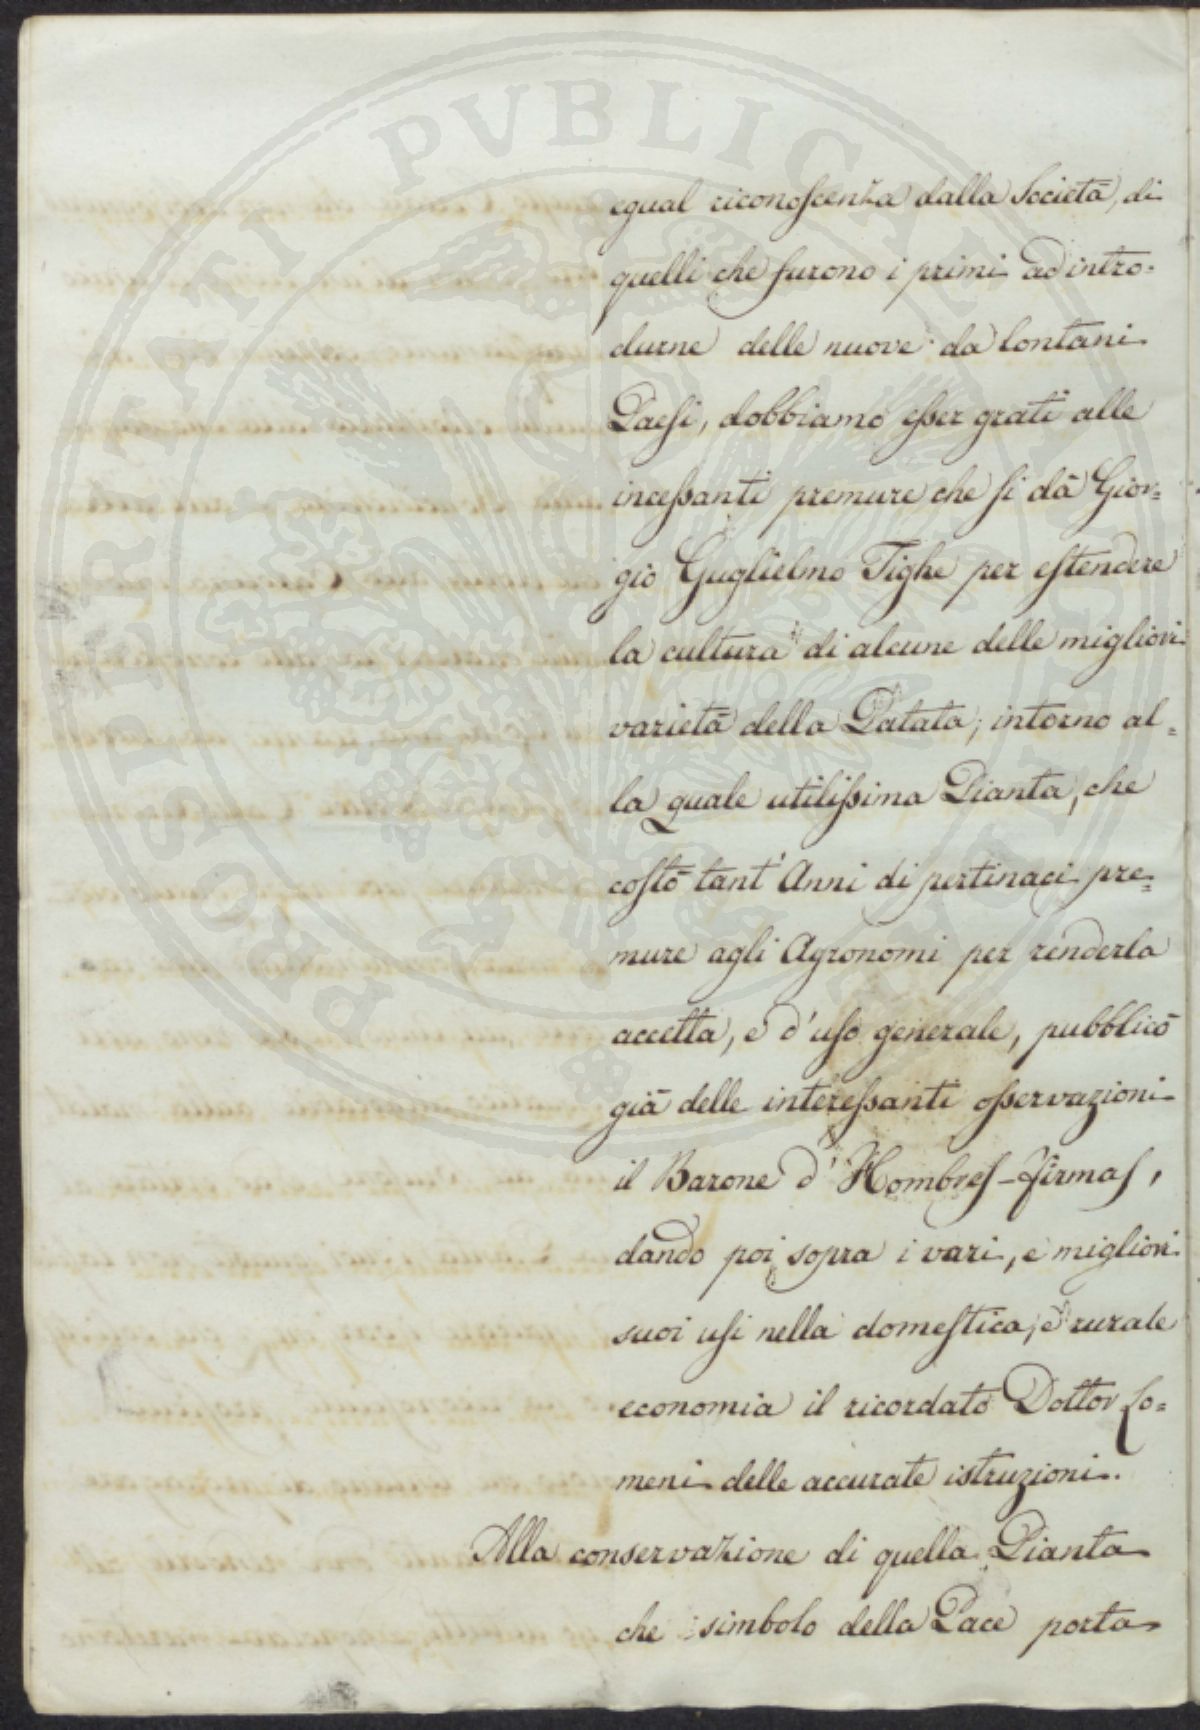 PROSPERITATI PVBLICAE AVGENDAE
egual riconoscenza dalla Società, di
quelli che furono i primi ad intro=
durne delle nuove da lontani
Paesi, dobbiamo esser grati alle
incessanti premure che si dà Gior=
gio Guglielmo Tighe per estendere
la cultura di alcune delle migliori
varietà della Patata; intorno al=
la quale utilissima Pianta, che
costò tant'Anni di pertinaci pre=
mure agli Agronomi per renderla
accetta, e d'uso generale, pubblicò
già delle interessanti osservazioni
il Barone d'Hombres-firmas,
dando poi sopra i vari, e migliori
suoi usi nella domestica, e rurale
economia il ricordato Dottor Lo=
meni delle accurate istruzioni.
Alla conservazione di quella Pianta
che simbolo della Pace porta